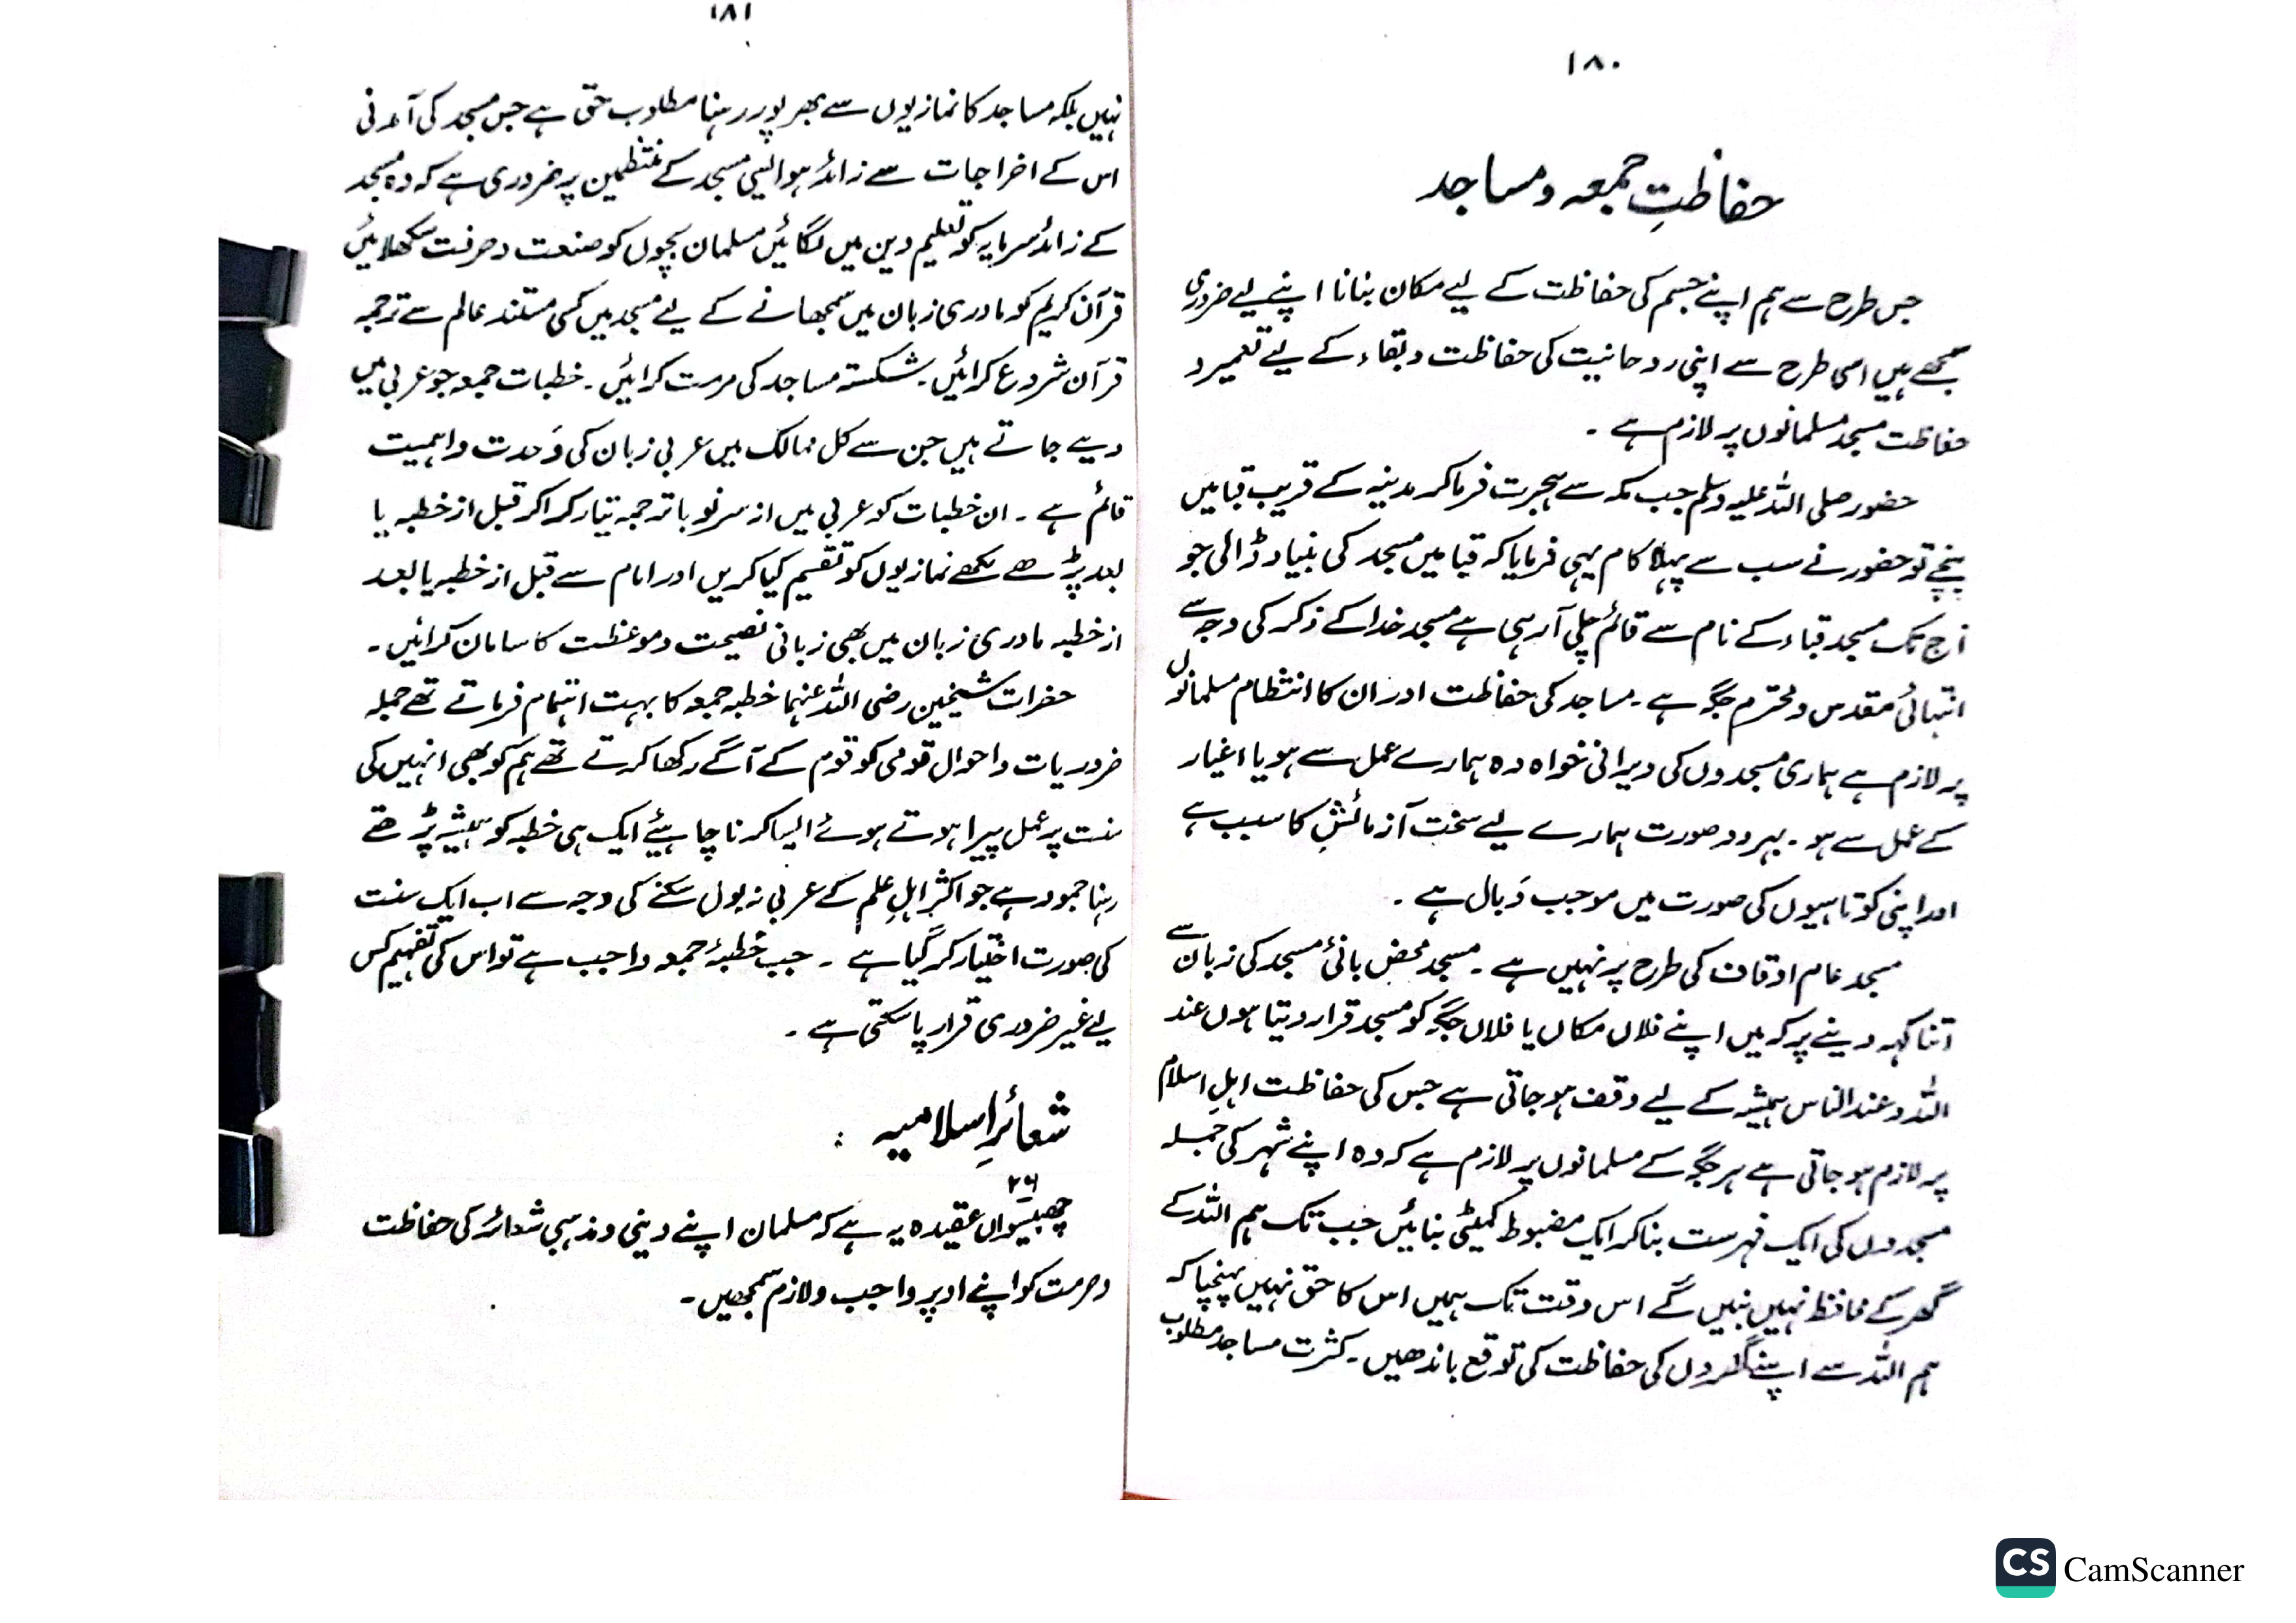 ۱۸۰
حفاظتِ جمعہ و مساجد
جس طرح سے ہم اپنے جسم کی حفاظت کے لیے مکان بنانا اپنے لیے ضروری
سمجھے ہیں اسی طرح سے اپنی روحانیت کی حفاظت و بقاء کے لیے تعمیر و
حفاظت مسجد مسلمانوں پر لازم ہے ۔
حضور صلی اللہ علیہ وسلم جب مکہ سے ہجرت فرماکر مدینہ کے قریب قبا میں
پہنچے تو حضور نے سب سے پہلا کام یہی فرمایا کہ قبا میں مسجد کی بنیاد ڈالی جو
آج تک مسجد قباء کے نام سے قائم چلی آرہی ہے مسجد خدا کے ذکر کی وجہ سے
انتہائی مقدس و محترم جگہ ہے ۔ مساجد کی حفاظت اور ان کا انتظام مسلمانوں
پر لازم ہے ہماری مسجدوں کی ویرانی خواہ وہ ہمارے عمل سے ہو یا اغیار
کے عمل سے ہو ۔ بہر دو صورت ہمارے لیے سخت آزمائش کا سبب ہے
اور اپنی کوتاہیوں کی صورت میں موجب وَبال ہے ۔
مسجد عام اوقاف کی طرح پر نہیں ہے ۔ مسجد محض بانیٔ مسجد کی زبان سے
اتنا کہہ دینے پر کہ میں اپنے فلاں مکاں یا فلاں جگہ کو مسجد قرار دیتا ہوں عند
اللہ و عند الناس ہمیشہ کے لیے وقف ہو جاتی ہے جس کی حفاظت اہلِ اسلام
پر لازم ہو جاتی ہے ہر جگہ کے مسلمانوں پر لازم ہے کہ وہ اپنے شہر کی جملہ
مسجدوں کی ایک فہرست بنا کر ایک مضبوط کمیٹی بنائیں جب تک ہم اللہ کے
گھر کے محافظ نہیں بنیں گے اس وقت تک ہمیں اس کا حق نہیں پہنچتا کہ
ہم اللہ سے اپنے گھروں کی حفاظت کی توقع باندھیں ۔ کثرت مساجد مطلوب
۱۸۱
نہیں بلکہ مساجد کا نمازیوں سے بھرپور رہنا مطلوب حق ہے جس مسجد کی آمدنی
اس کے اخراجات سے زائد ہو ایسی مسجد کے منتظمین پر ضروری ہے کہ وہ مسجد
کے زائد سرمایہ کو تعلیم دین میں لگائیں مسلمان بچوں کو صنعت و حرفت سکھلائیں
قرآن کریم کو مادری زبان میں سمجھانے کے لیے مسجد میں کسی مستند عالم سے ترجمہ
قرآن شروع کرائیں ۔ شکستہ مساجد کی مرمت کرائیں ۔ خطبات جمعہ جو عربی میں
دیے جاتے ہیں جن سے کل ممالک میں عربی زبان کی وَحدت و اہمیت
قائم ہے ۔ ان خطبات کو عربی میں از سرِنو با ترجمہ تیار کرا کر قبل از خطبہ یا
بعد پڑھے لکھے نمازیوں کو تقسیم کیا کریں اور امام سے قبل از خطبہ یا بعد
از خطبہ مادری زبان میں بھی زبانی نصیحت و موعظت کا سامان کرائیں ۔
حضرات شیخین رضی اللہ عنہما خطبہ جمعہ کا بہت اہتمام فرماتے تھے جملہ
ضروریات و احوال قومی کو قوم کے آگے رکھا کرتے تھے ہم کو بھی انہیں کی
سنت پر عمل پیرا ہوتے ہوئے ایسا کرنا چاہیئے ایک ہی خطبہ کو ہمیشہ پڑھتے
رہنا جمود ہے جو اکثر اہلِ علم کے عربی نہ بول سکنے کی وجہ سے اب ایک سنت
کی صورت اختیار کر گیا ہے ۔ جب خطبۂ جمعہ واجب ہے تو اس کی تفہیم کس
لیے غیر ضروری قرار پا سکتی ہے ۔
شعائرِ اسلامیہ :
۲۶
چھبیسواں عقیدہ یہ ہے کہ مسلمان اپنے دینی و مذہبی شعائر کی حفاظت
و حرمت کو اپنے اوپر واجب و لازم سمجھیں ۔
CS CamScanner